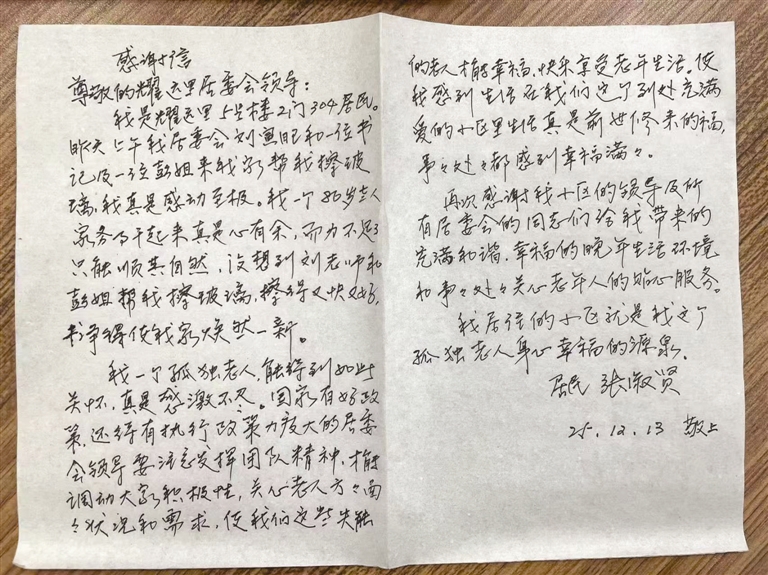 感谢信
尊敬的耀远里居委会领导：
我是耀远里5号楼2门304居民。
昨天上午我居委会刘 和一位书
记及一位彭姐来我家帮我擦玻
璃，我真是感动至极。我一个86岁老人
家务活干起来真是心有余，而力不足了
只能顺其自然，没想到刘老师和
彭姐帮我擦玻璃，擦得又快又好，
干净得使我家焕然一新。
我一个孤独老人，能得到如此
关怀，真是感激不尽。国家有好政
策，还得有执行政策力度大的居委
会领导要注意发挥团队精神，才能
调动大家积极性，关心老人方々面
々状况和需求，使我们这些失能
的老人才能幸福、快乐享受老年生活。使
我感到生活在我们这个到处充满
爱的小区里生活真是前世修来的福，
事々处々都感到幸福满々。
再次感谢我小区的领导及所
有居委会的同志们给我带来的
充满和谐、幸福的晚年生活环境
和事々处々关心老年人的贴心服务。
我居住的小区就是我这个
孤独老人身心幸福的源泉。
居民 张淑贤
25.12.13 敬上